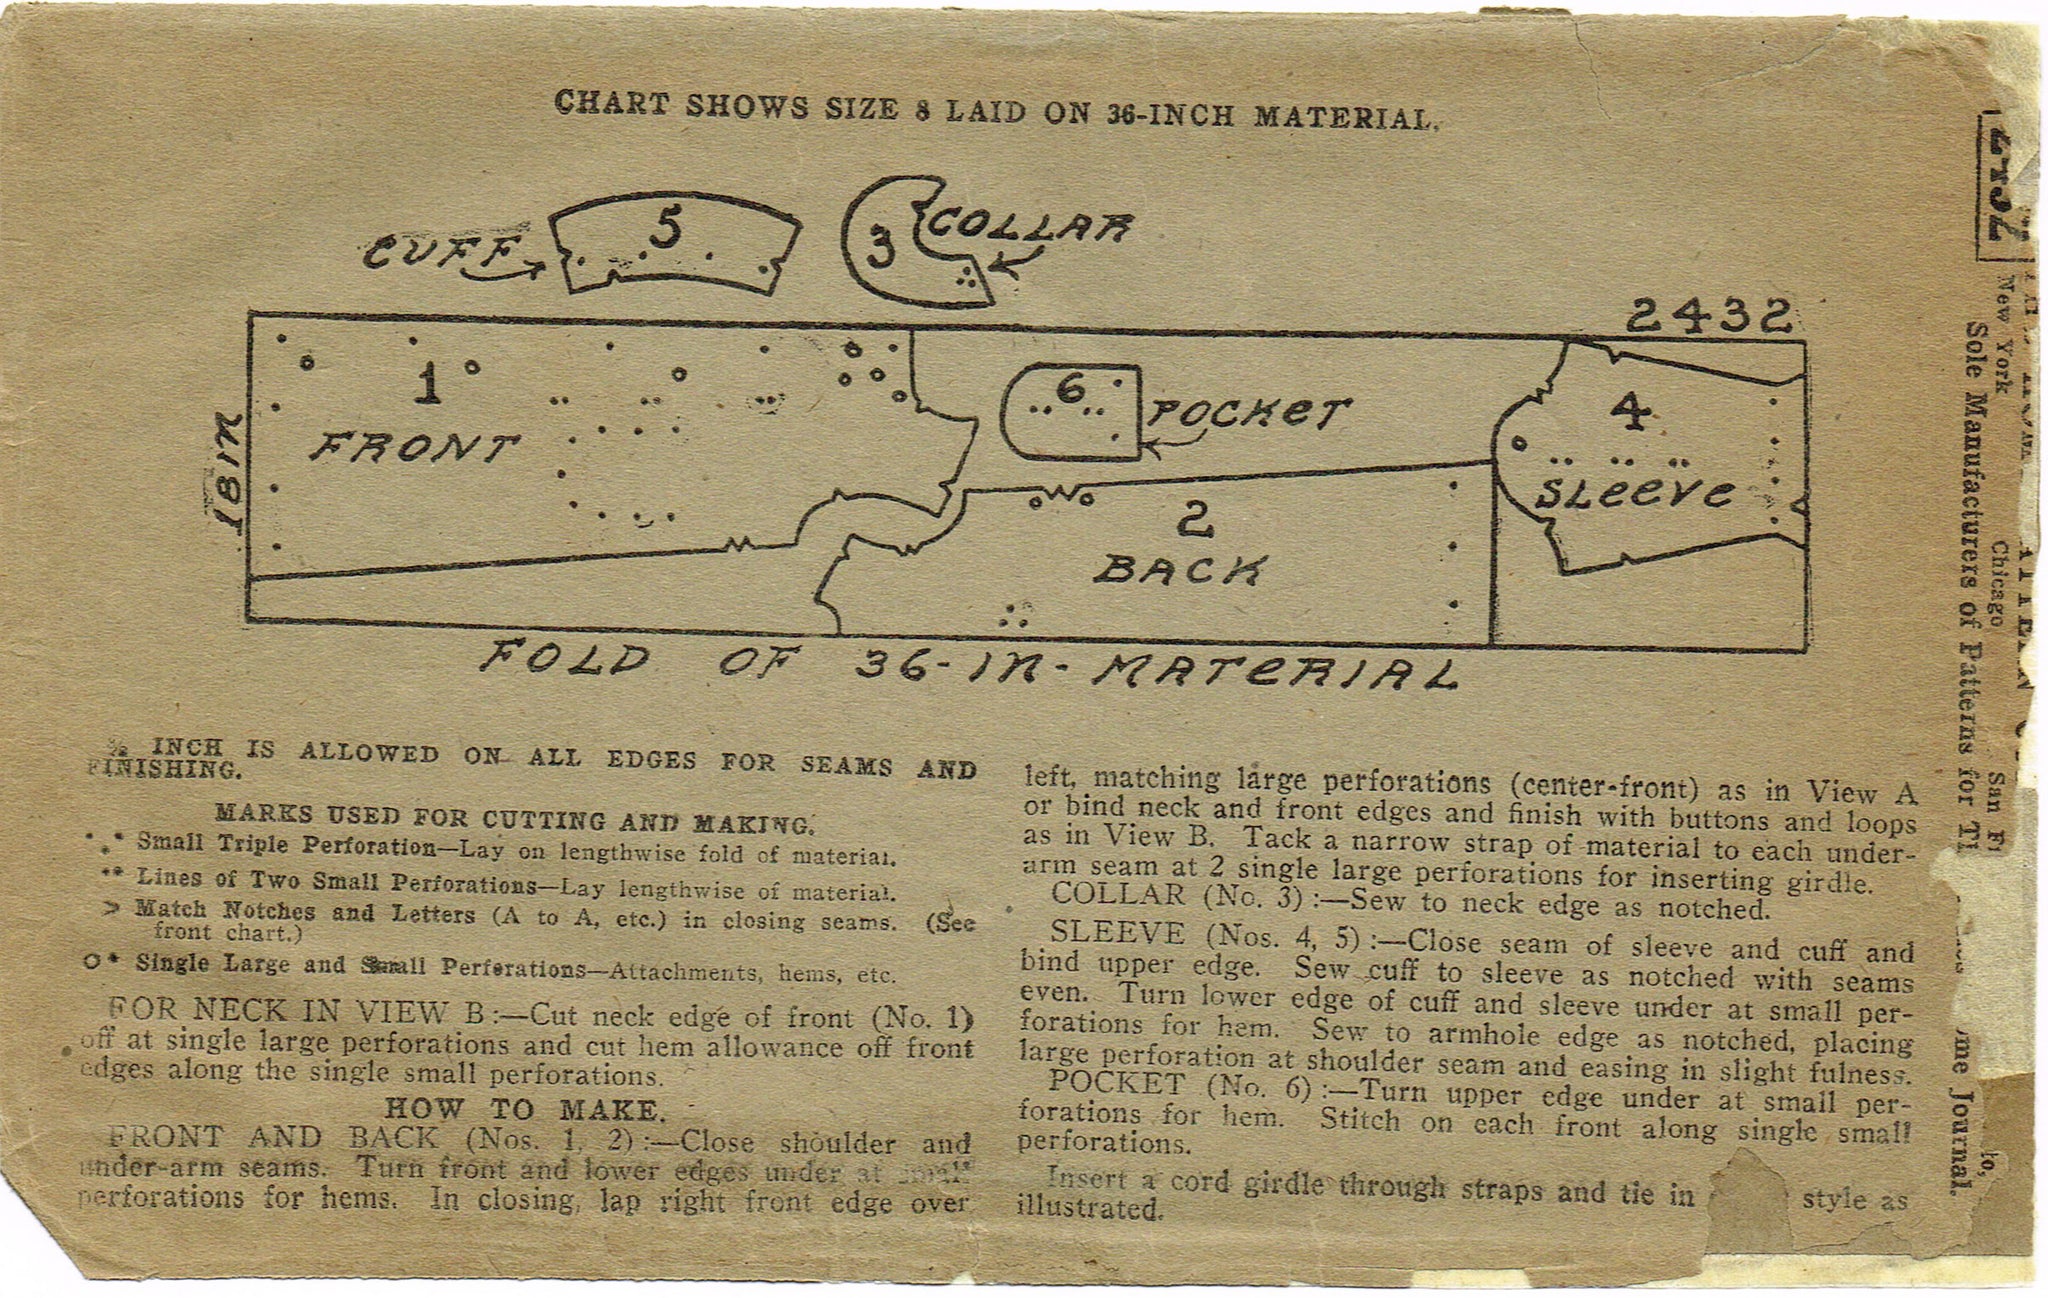 CHART SHOWS SIZE 8 LAID ON 36-INCH MATERIAL.
CUFF
5
3
COLLAR
2432
18 IN
1
FRONT
6
POCKET
4
SLEEVE
2
BACK
FOLD OF 36-IN-MATERIAL
INCH IS ALLOWED ON ALL EDGES FOR SEAMS AND
FINISHING.
MARKS USED FOR CUTTING AND MAKING.
Small Triple Perforation—Lay on lengthwise fold of material.
Lines of Two Small Perforations—Lay lengthwise of material.
> Match Notches and Letters (A to A, etc.) in closing seams. (See
front chart.)
Single Large and Small Perforations—Attachments, hems, etc.
FOR NECK IN VIEW B:—Cut neck edge of front (No. 1)
off at single large perforations and cut hem allowance off front
edges along the single small perforations.
HOW TO MAKE.
FRONT AND BACK (Nos. 1, 2):—Close shoulder and
under-arm seams. Turn front and lower edges under at small
perforations for hems. In closing, lap right front edge over
left, matching large perforations (center-front) as in View A
or bind neck and front edges and finish with buttons and loops
as in View B. Tack a narrow strap of material to each under-
arm seam at 2 single large perforations for inserting girdle.
COLLAR (No. 3):—Sew to neck edge as notched.
SLEEVE (Nos. 4, 5):—Close seam of sleeve and cuff and
bind upper edge. Sew cuff to sleeve as notched with seams
even. Turn lower edge of cuff and sleeve under at small per-
forations for hem. Sew to armhole edge as notched, placing
large perforation at shoulder seam and easing in slight fulness.
POCKET (No. 6):—Turn upper edge under at small per-
forations for hem. Stitch on each front along single small
perforations.
Insert a cord girdle through straps and tie in style as
illustrated.
2432
New York Chicago San
Sole Manufacturers of Patterns for Journal.